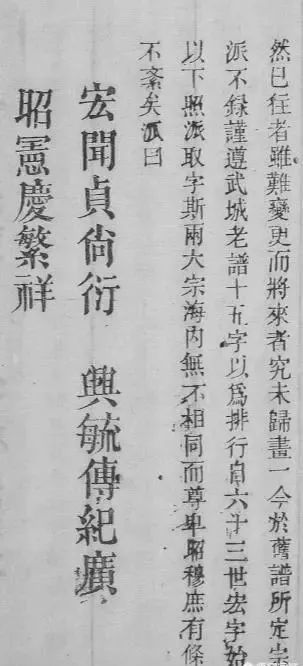 然已往者雖難變更而將來者究未歸畫一今於舊譜所定宗
派不録謹遵武城老譜十五字以爲排行自六十三世宏字始
以下照派取字斯兩大宗海内無不相同而尊卑昭穆庶有條
不紊矣派曰
宏聞貞尚衍　興毓傳紀廣
昭憲慶繁祥